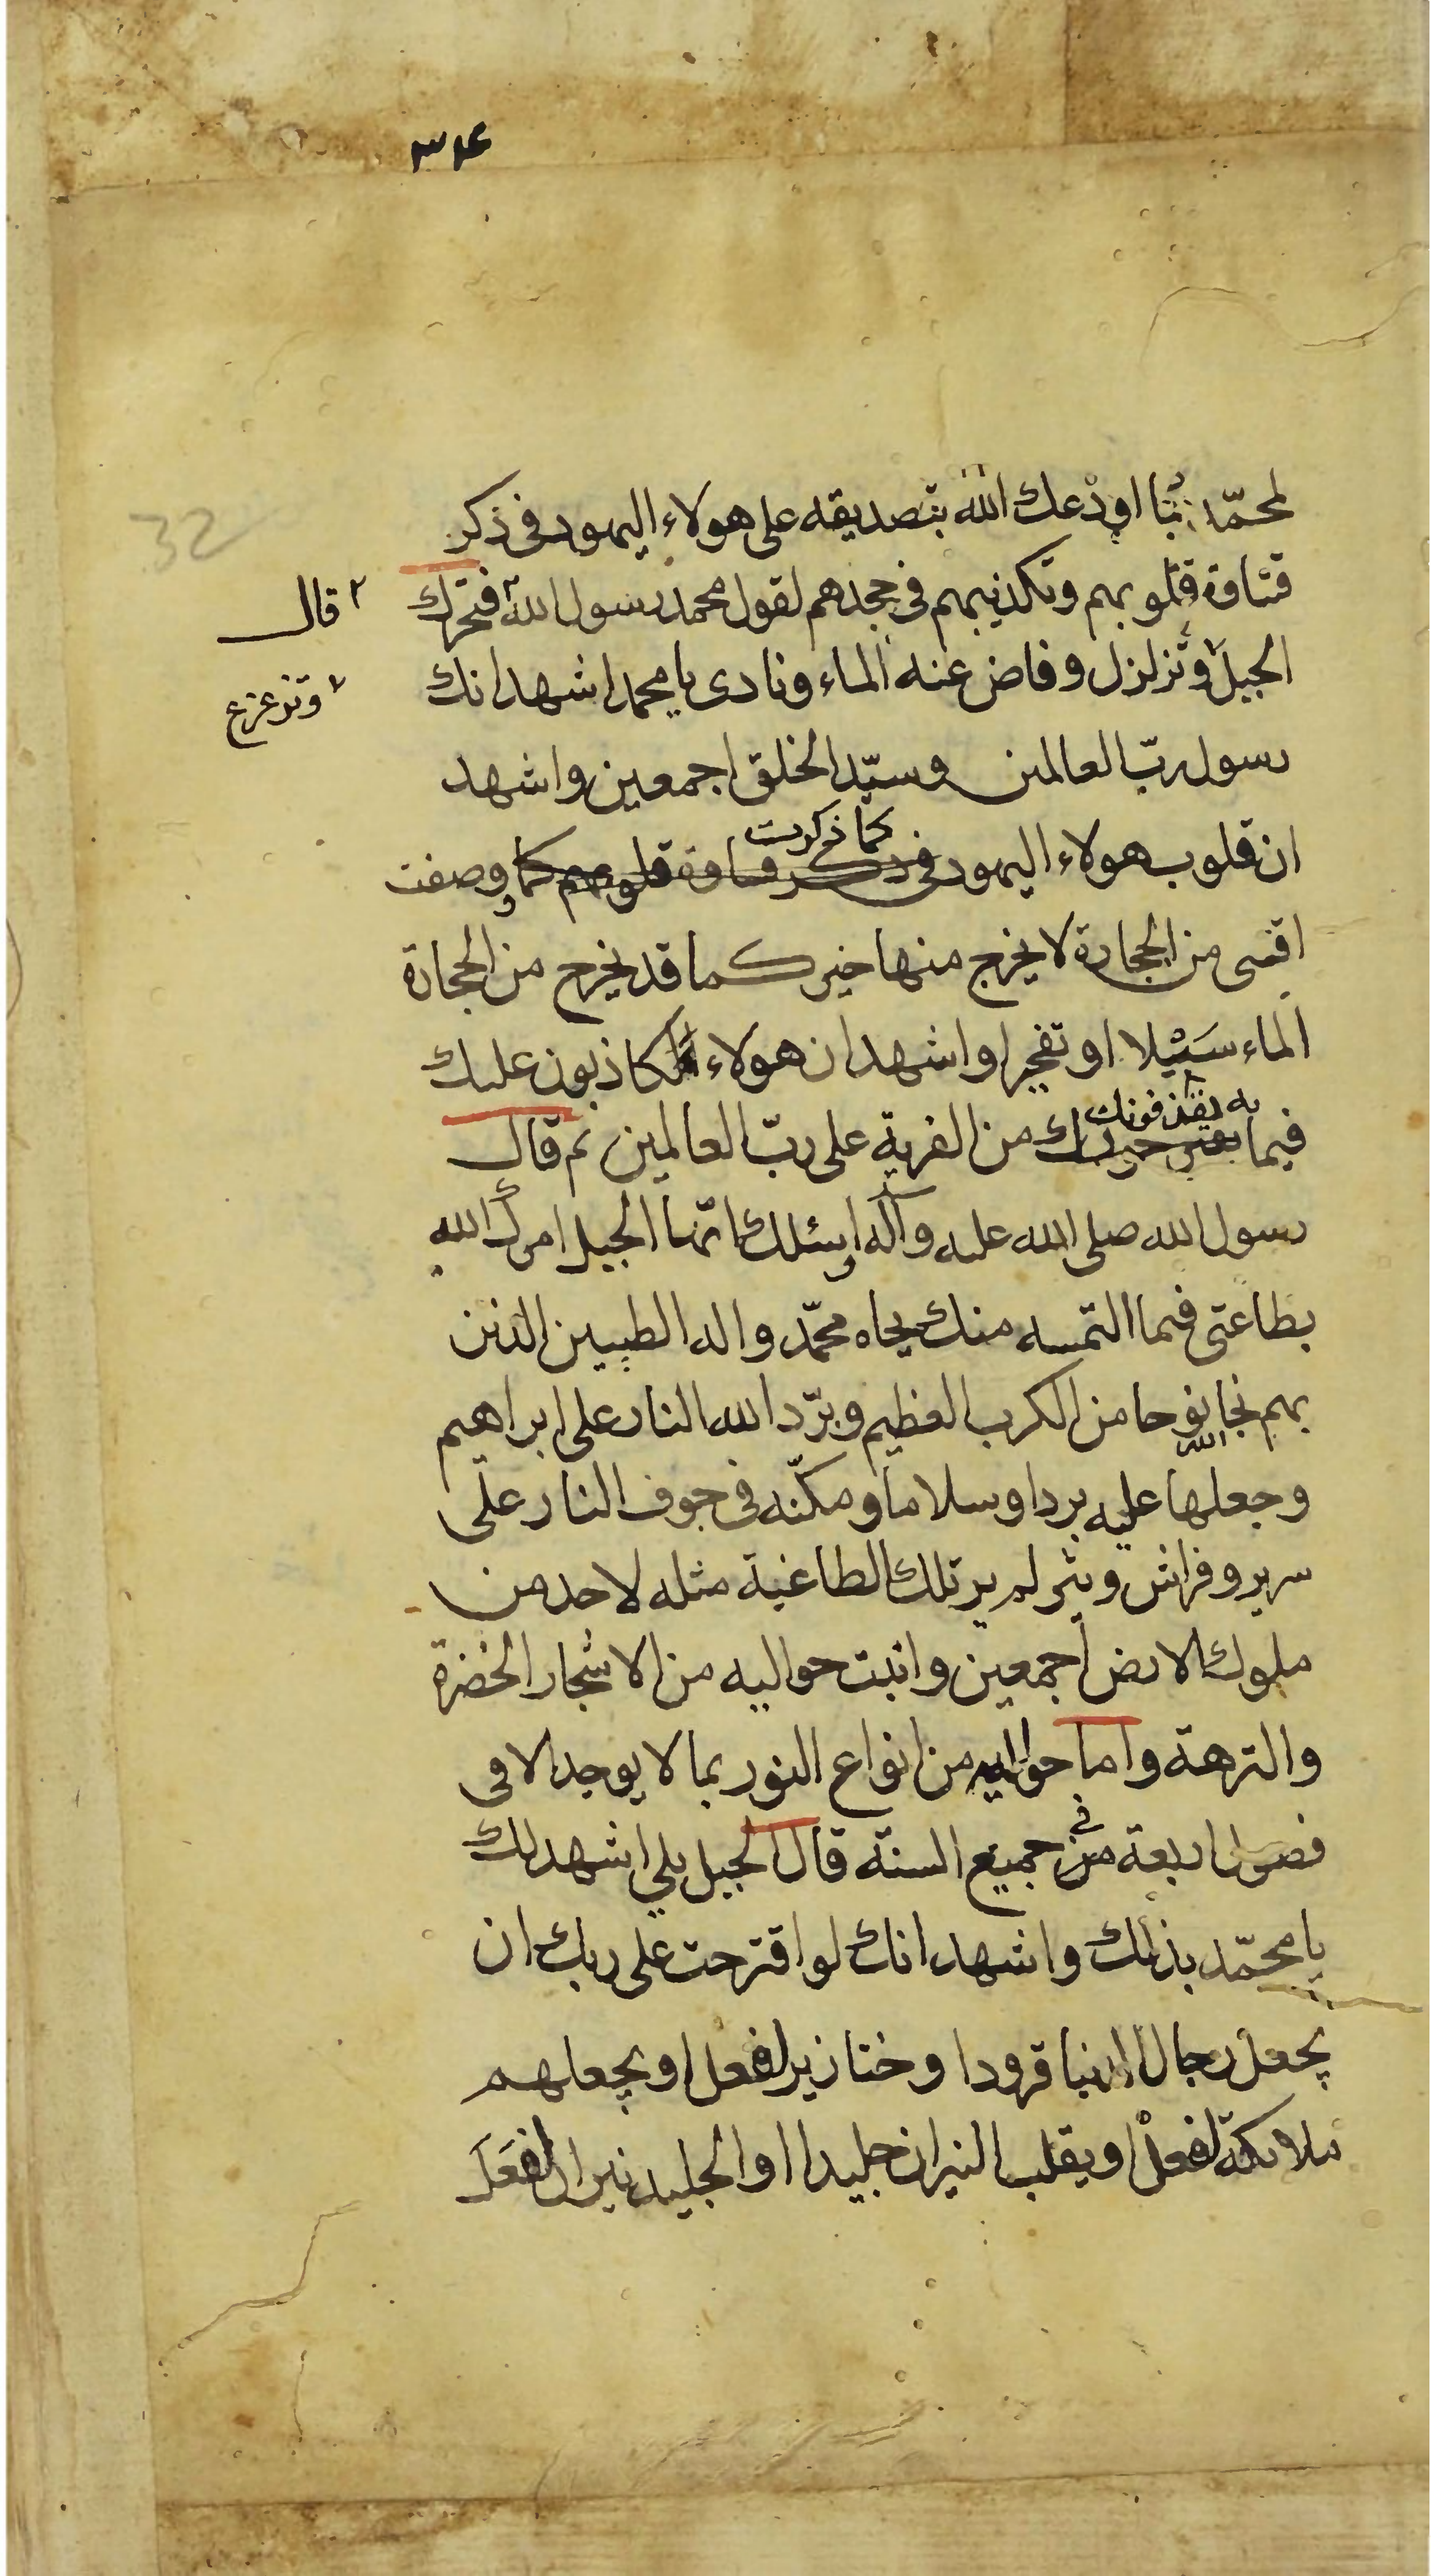 ٣٤
32
لمحمّد بما اودعك الله بتصديقه على هولاء اليهود فى ذكر
قساوة قلوبهم وتكذيبهم فى جحدهم لقول محمد رسول الله فتحرك
قال
الجبل وتزلزل وفاض عنه الماء ونادى يا محمد اشهد انك
وتزعزع
رسول ربّ العالمين وسيّد الخلق اجمعين واشهد
كما ذكرت
ان قلوب هولاء اليهود فى ذكر قساوة قلوبهم كما وصفت
اقسى من الحجارة لا يخرج منها خير كما قد يخرج من الحجارة
الماء سَيْلا او تفجيرا واشهد ان هولاء لكاذبون عليك
به يقذفونك
فيما من الفرية على ربّ العالمين ثم قال
رسول الله صلى الله عليه وآله واسئلك ايّها الجبل امرك الله
بطاعتى فيما التمسه منك بجاه محمّد واله الطيبين الذين
بهم نجا نوحا من الكرب العظيم وبرّد الله النار على ابراهيم
الله
وجعلها عليه بردا وسلاما ومكنّه فى جوف النار على
سرير وفراش وثير لم ير تلك الطاغية مثله لاحد من
ملوك الارض اجمعين وانبت حواليه من الاشجار الخضرة
والنزهة واما حواليه من انواع النور بما لا يوجد الا فى
فصول اربعة من فى جميع السنة قال الجبل بلى اشهد لك
يا محمّد بذلك واشهد انك لو اقترحت على ربك ان
يجعل رجال الدنيا قرودا وخنازير لفعل او يجعلهم
ملائكة لفعلْ او يقلب النيران جليدا او الجليد نيرانا لفعَلَ